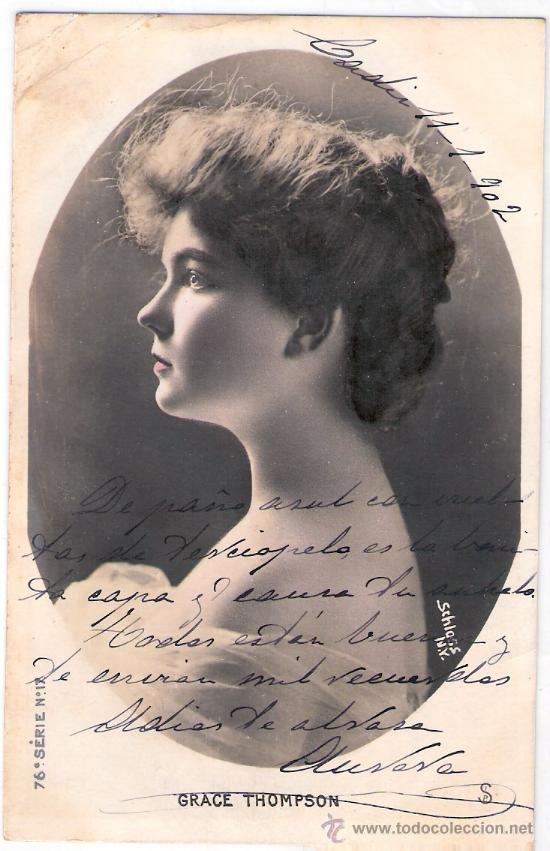 Cadiz 11-1-902
De paño azul con vuel-
tas de terciopelo, es la boni-
ta capa y causa tu anhelo.
Todos están buenos y
te envian mil recuerdos
Adios te abraza
Aurora
Schloss
N.Y.
76ᵉ SÉRIE Nº 17
GRACE THOMPSON
SP
www.todocoleccion.net